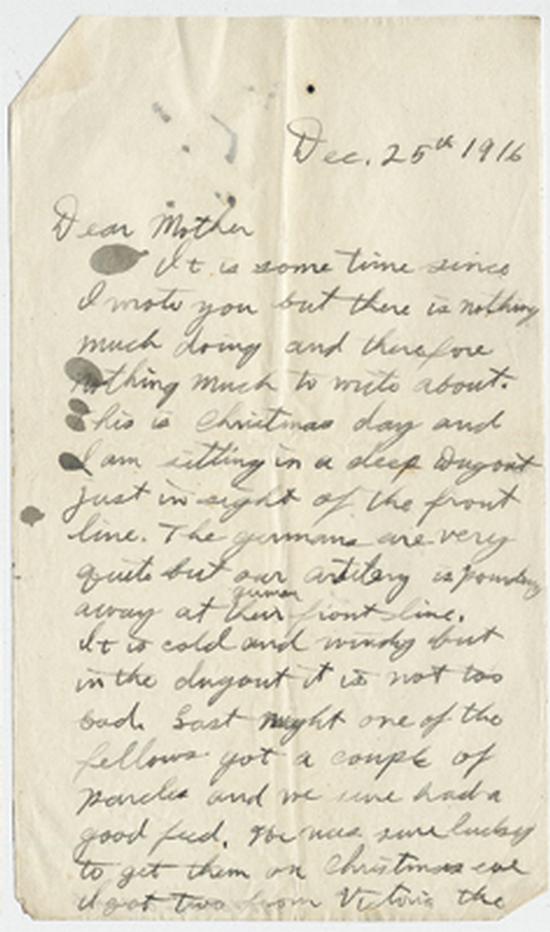 Dec. 25th 1916
Dear Mother
It is some time since
I wrote you but there is nothing
much doing and therefore
nothing much to write about.
This is Christmas day and
I am sitting in a deep Dugout
just in sight of the front
line. The germans are very
quite but our artilery is pounding
german
away at their front line.
It is cold and windy but
in the dugout it is not too
bad. Last night one of the
fellows got a couple of
parcles and we sure had a
good feed. He was sure lucky
to get them on Christmas eve
I got two from Victoria the